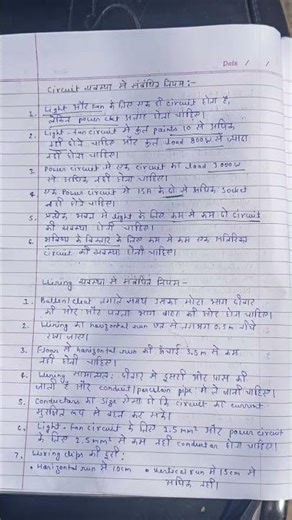 Date / /
Circuit व्यवस्था से संबंधित नियम:-
1. Light और Fan के लिए एक ही circuit होता है,
लेकिन power ckt अलग होना चाहिए।
2. Light-fan circuit में कुल points 10 से अधिक
नहीं होने चाहिए और कुल load 800W से ज्यादा
नहीं होना चाहिए।
3. Power circuit में एक circuit का load 3000W
से अधिक नहीं होना चाहिए।
4. एक Power circuit में 15A के दो से अधिक socket
नहीं होने चाहिए।
5. प्रत्येक भवन में light के लिए कम से कम दो circuit
की व्यवस्था होनी चाहिए।
6. भविष्य के विस्तार के लिए कम से कम एक अतिरिक्त
circuit की व्यवस्था होनी चाहिए।
Wiring व्यवस्था से संबंधित नियम-
1. लगाते समय उसका मोटा भाग दीवार
की ओर और पतला भाग बाहर की ओर होना चाहिए।
2. Wiring का horizontal run छत से लगभग 0.5m नीचे
रखा जाए।
3. Floor से horizontal run की ऊंचाई 2.5m से कम
नहीं होनी चाहिए।
4. Wiring सामान्यतः दीवार से दूसरी ओर पास की
जाती है और conduit/porcelain pipe से ले जानी चाहिए।
5. Conductor का size ऐसा हो कि circuit का current
सुरक्षित रूप से वहन कर सके।
6. Light-fan circuit के लिए 1.5mm² और power circuit
के लिए 2.5mm² से कम नहीं conductor होना चाहिए।
7. Wiring clips की दूरी:
• Horizontal run में 10cm • Vertical run में 15cm से
अधिक नहीं।